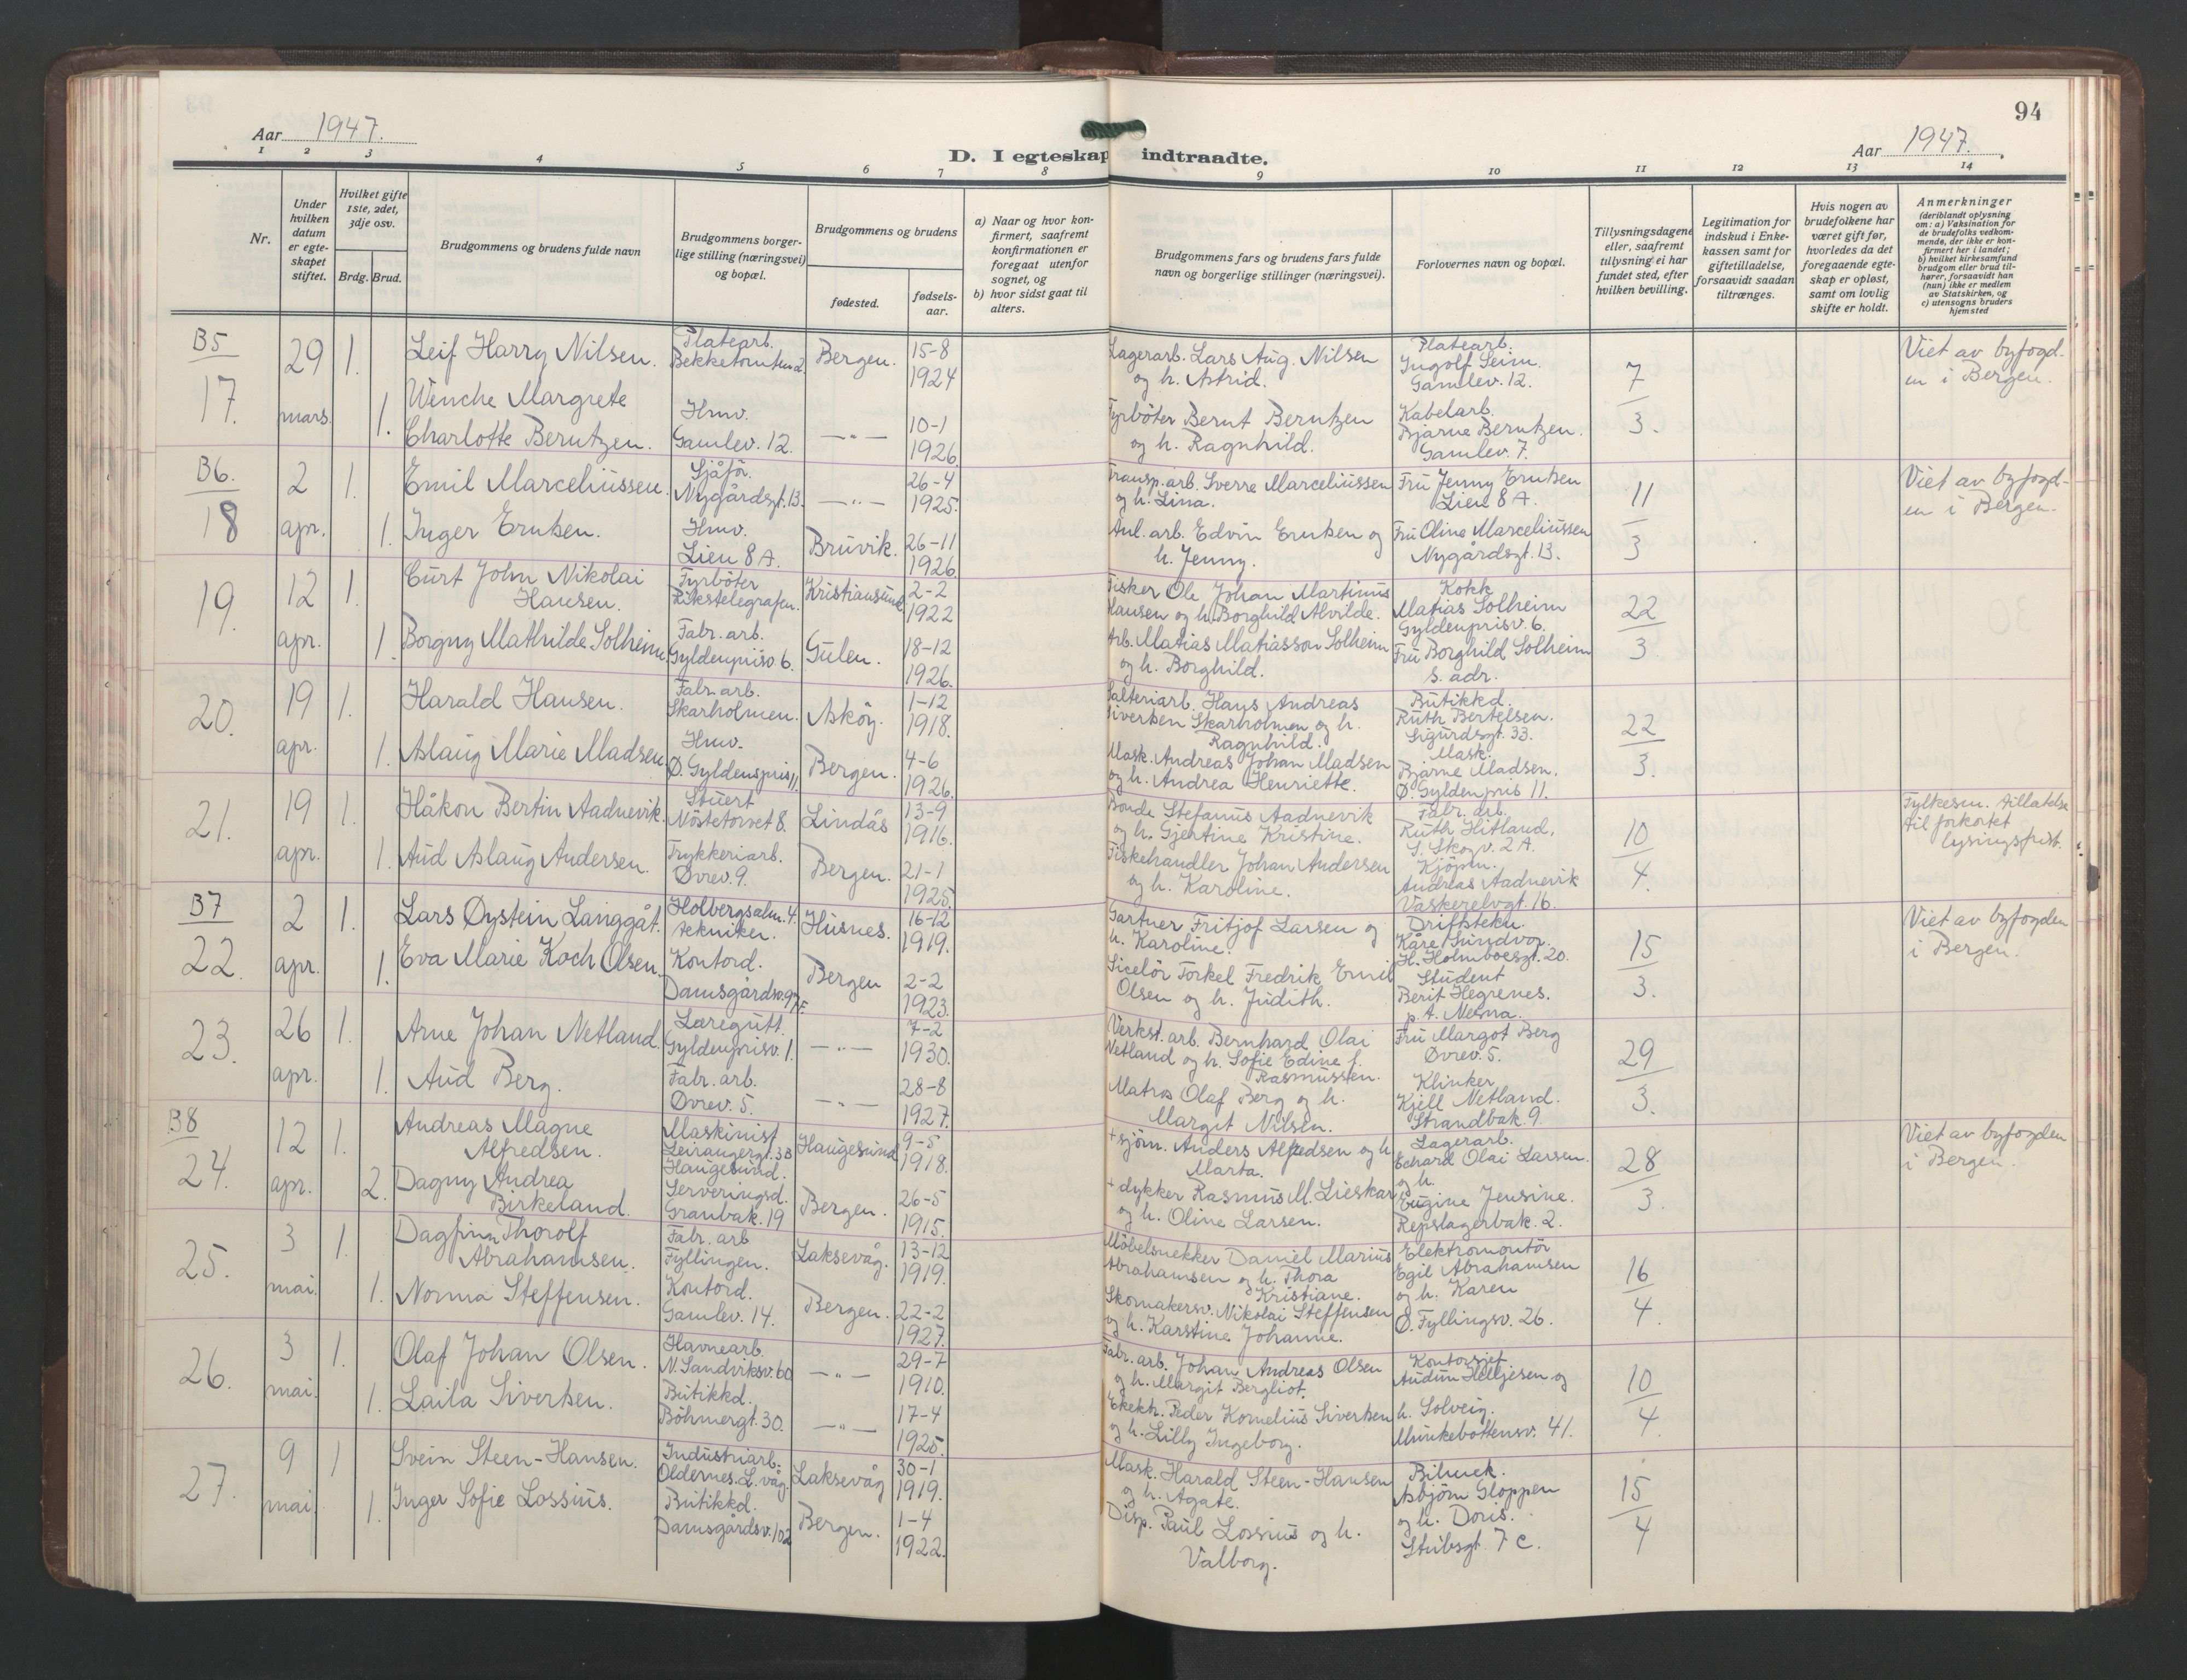 94
Aar 1947.
D. I egteskap indtraadte.
Aar 1947.
1 2 3 4 5 6 7 8 9 10 11 12 13 14
Nr.
Under hvilken datum er egte-skapet stiftet.
Hvilket gifte 1ste, 2det, 3dje osv.
Brdg. Brud.
Brudgommens og brudens fulde navn
Brudgommens borger-lige stilling (næringsvei) og bopæl.
Brudgommens og brudens
fødested.
fødsels-aar.
a) Naar og hvor kon-firmert, saafremt konfirmationen er foregaat utenfor sognet, og
b) hvor sidst gaat til alters.
Brudgommens fars og brudens fars fulde navn og borgerlige stillinger (næringsvei).
Forlovernes navn og bopæl.
Tillysningsdagene eller, saafremt tillysning ei har fundet sted, efter hvilken bevilling.
Legitimation for indskud i Enke-kassen samt for giftetilladelse, forsaavidt saadan tiltrænges.
Hvis nogen av brudefolkene har været gift før, hvorledes da det foregaaende egte-skap er opløst, samt om lovlig skifte er holdt.
Anmerkninger
(deriblandt oplysning om: a) Vaksination for de brudefolks vedkom-mende, der ikke er kon-firmert her i landet;
b) hvilket kirkesamfund brudgom eller brud til-hører, forsaavidt han (hun) ikke er medlem av Statskirken, og
c) utensogns bruders hjemsted
B5
17.
29 mars 1.
Leif Harry Nilsen.
Platearb.
Bekketomten 2
Bergen.
15-8
1924
Lagerarb. Lars Aug. Nilsen
og h. Astrid.
Platearb.
Ingolf Seim.
Gamlev. 12.
7
3.
Viet av byfogd-
en i Bergen.
1.
Wenche Margrete
Charlotte Berntzen.
Hmv.
Gamlev. 12.
-"-
10-1
1926.
Fyrböter Bernt Berntzen
og h. Ragnhild.
Kabelarb.
Bjarne Berntzen.
Gamlev. 7.
B6.
18
2 apr. 1.
Emil Marceliussen.
Sjåför.
Nygårdsgt. 13.
-"-
26-4
1925.
Transp. arb. Sverre Marceliussen
og h. Lina.
Fru Jenny Eruksen
Lien 8 A.
11
3
Viet av byfogd-
en i Bergen.
1.
Inger Eruksen.
Hmv.
Lien 8 A.
Bruvik.
26-11
1926.
Anl. arb. Edvin Eruksen og
h. Jenny.
Fru Oline Marceliussen
Nygårdsgt. 13.
19.
12 apr. 1.
Curt John Nikolai
Hansen.
Fyrböter
Rikstelegrafen.
Kristiansund
2-2
1922
Fisker Ole Johan Martinius
Hansen og h. Borghild Alvilde.
Kokk
Matias Solheim
Gyldenprisv. 6.
22
3
1.
Borgny Mathilde Solheim.
Fabr. arb.
Gyldenprisv. 6.
Gulen.
18-12
1926.
Arb. Matias Matiasson Solheim
og h. Borghild.
Fru Borghild Solheim
s. adr.
20.
19 apr. 1.
Harald Hansen.
Fabr. arb.
Skarholmen.
Asköy.
1-12
1918.
Salteriarb. Hans Andreas
Siversen Skarholmen og h.
Ragnhild.
Butikkd.
Ruth Bertelsen.
Sigurdsgt. 33.
22
3.
1.
Aslaug Marie Madsen
Hmv.
Ø. Gyldenspris 11.
Bergen.
4-6
1926.
Mask. Andreas Johan Madsen
og h. Andrea Henriette.
Mask.
Bjarne Madsen.
Ø. Gyldenpris 11.
21.
19 apr. 1.
Håkon Bertin Aadnevik.
Stuert
Nöstetorvet 8.
Lindås
13-9
1916.
Bonde Stefanus Aadnevik
og h. Gjertine Kristine.
Fabr. arb.
Ruth Hitland.
S. Skogv. 2 A.
10
4.
Fylkesm. tillatelse
til forkortet
lysingsfrist.
1.
Aud Aslaug Andersen.
Trykkeriarb.
Øvrev. 9.
Bergen.
21-1
1925.
Fiskehandler Johan Andersen
og h. Karoline.
Kjöpm.
Andreas Aadnevik
Vaskerelvgt. 16.
B7
22.
2 apr. 1.
Lars Øystein Langgåt.
Holbergsalm. 4.
tekniker.
Husnes.
16-12
1919.
Gartner Fritjof Larsen og
h. Karoline.
Driftstekn.
Kåre Sundvor.
H. Holmboesgt. 20.
15
3.
Viet av byfogden
i Bergen.
1.
Eva Marie Koch Olsen.
Kontord.
Damsgårdsv. 97 F.
Bergen
2-2
1923.
Torkel Fredrik Emil
Olsen og h. Judith.
Student
Berit Hegrenes.
23.
26 apr. 1.
Arne Johan Netland.
Læregutt.
Gyldenprisv. 1.
-"-
7-2
1930.
Verkst. arb. Bernhard Olai
Netland og h. Sofie Edine f.
Rasmussen.
Fru Margot Berg
Øvrev. 5.
29
3.
1.
Aud Berg.
Fabr. arb.
Øvrev. 5.
-"-
28-8
1927.
Matros Olaf Berg og h.
Margit Nilsen.
Klinker
Kjell Netland.
Strandbak. 9.
B8
24.
12 apr. 1.
Andreas Magne
Alfredsen.
Maskinist
Leirangergt. 3B
Haugesund.
Haugesund
9-5
1918.
+ sjöm. Anders Alfredsen og h
Marta.
Lagerarb.
Edvard Olai Larsen.
og h.
Eugine Jensine.
Repslagerbak. 2.
28
3.
Viet av byfogden
i Bergen.
2.
Dagny Andrea
Birkeland.
Serveringsd.
Granbak. 19
Bergen.
26-5
1915.
+ dykker Rasmus M. Lieskar
og h. Oline Larsen.
25.
3 mai. 1.
Dagfinn Thorolf
Abrahamsen.
Fabr. arb
Fyllingen.
Laksevåg.
13-12
1919.
Möbelsnekker Daniel Marius
Abrahamsen og h. Thora
Kristiane.
Elektromontör
Egil Abrahamsen
og h. Karen
Ø. Fyllingsv. 26.
16
4.
1.
Norma Steffensen.
Kontord.
Gamlev. 14.
Bergen.
22-2
1927.
Skomakersv. Nikolai Steffensen
og h. Karstine Johanne.
26.
3 mai. 1.
Olaf Johan Olsen.
Havnearb.
N. Sandviksv. 60
-"-
29-7
1910.
Fabr. arb. Johan Andreas Olsen
og h. Margit Bergliot.
Kontorsjef
Audun Helljesen og
h. Solveig.
Munkebottensv. 41.
10
4.
1.
Laila Sivertsen.
Butikkd.
Böhmergt. 30.
-"-
17-4
1925.
Ekekh. Peder Kornelius Sivertsen
og h. Lilly Ingeborg.
27.
9 mai. 1
Svein Steen-Hansen.
Industriarb.
Oldernes. L. våg.
Laksevåg
30-1
1919.
Mask. Harald Steen-Hansen
og h. Agate.
Bilmek.
Asbjörn Gloppen
og h. Doris.
Stubsgt. 7 c.
15
4
1.
Inger Sofie Lossius.
Butikkd.
Damsgårdsv. 102
Bergen.
1-4
1922.
Disp. Paul Lossius og h.
Valborg.